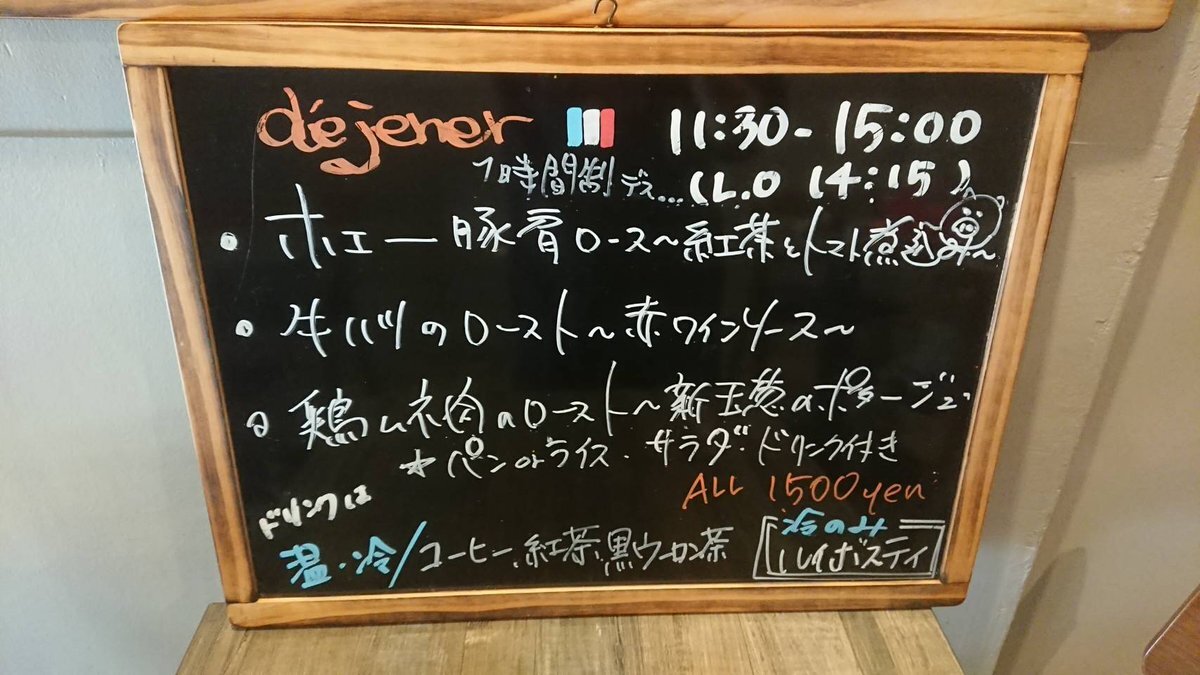 déjener 11:30-15:00
1時間制デス...(L.O 14:15)
・ホエー豚肩ロース〜紅茶とトマト煮込み〜
・牛ハツのロースト〜赤ワインソース〜
・鶏ムネ肉のロースト〜新玉葱のポタージュ〜
★パン orライス・サラダ・ドリンク付き
ALL 1500yen
ドリンクは
温・冷/コーヒー、紅茶、黒ウーロン茶
冷のみ
ルイボスティ